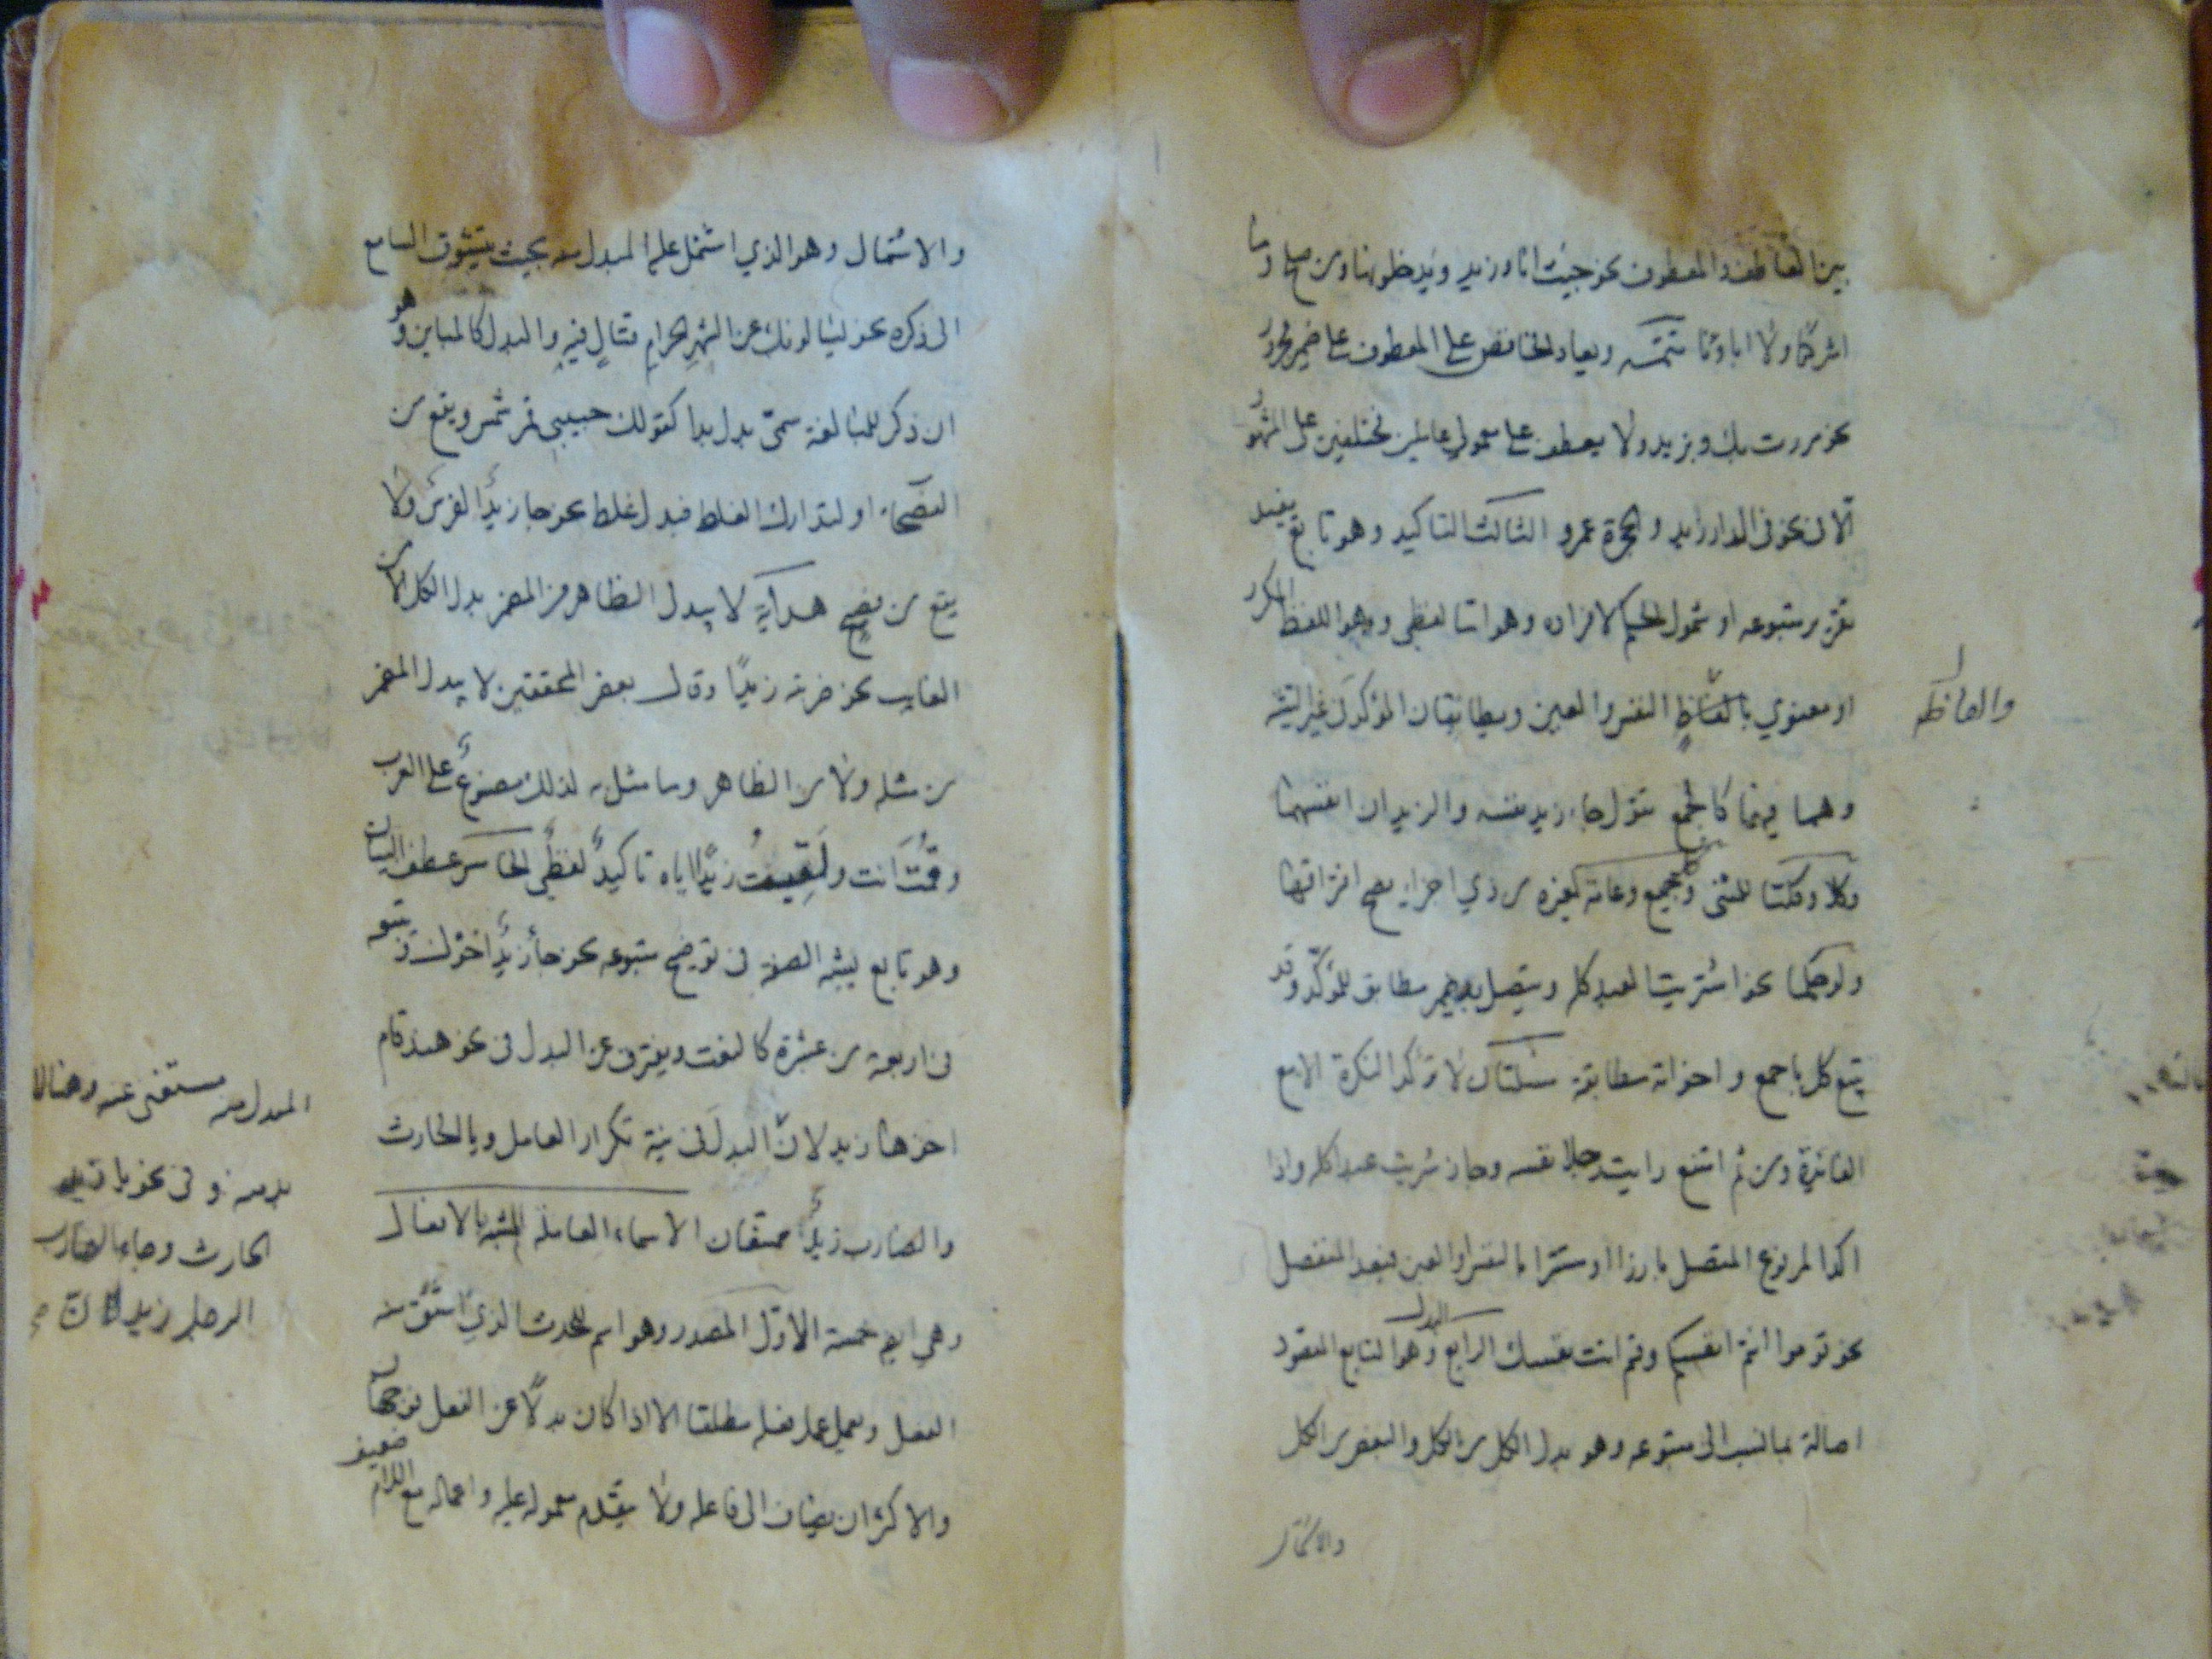 بين العاطف والمعطوف نحو جئت انا وزيد ويدخلونها ومن صلح وما
اشركنا ولا اباؤنا تتمة ويعاد الخافض على المعطوف على ضمير مجرور
نحو مررت بك وبزيد ولا يعطف على معمولي عاملين مختلفين على المشهور
الا في نحو في الدار زيد والحجرة عمرو الثالث التاكيد وهو تابع يفيد
تقرير متبوعه او شمول الحكم لافراده وهو اما لفظي وهو اللفظ المكرر
او معنوي بالفاظ النفس والعين ويطابقان المؤكد في غير التثنية
وهما فيها كالجمع تقول جاء زيد نفسه والزيدان انفسهما
وكلا وكلتا للمثنى وكل وجميع وعامة لغيره من ذي اجزاء يصح افتراقها
ولو حكما نحو اشتريت العبد كله ويتصل بضمير مطابق للمؤكد وقد
يتبع كل باجمع واخواته مطابقة مسئلتان لا تؤكد النكرة الا مع
الفائدة ومن ثم امتنع رايت رجلا نفسه وجاز شريت عبدا كله واذا
اكد المرفوع المتصل بارزا او مستترا بالنفس او العين فبعد المنفصل
نحو قوموا انتم انفسكم وقم انت نفسك الرابع البدل وهو التابع المقصود
اصالة بما نسب الى متبوعه وهو بدل الكل من الكل والبعض من الكل
والاشتمال
والفاظه
والاشتمال وهو الذي اشتمل عليه المبدل منه بحيث يتشوق السامع
الى ذكره نحو يسالونك عن الشهر الحرام قتال فيه والبدل كالمباين وهو
ان ذكر للمبالغة سمى بدل بدا كقولك حبيبي قمر شمس ويقع من
الفصحاء او لتدارك الغلط فبدل غلط نحو جاء زيد الفرس ولا
يقع من فصيح هداية لا يبدل الظاهر من المضمر بدل الكل الا من
الغايب نحو ضربته زيدا وقال بعض المحققين لا يبدل المضمر
من مثله ولا من الظاهر وما مثل به لذلك مصنوع على العرب
وقمت انت ولقيت زيدا اياه تاكيد لفظي الخامس عطف البيان
وهو تابع يشبه الصفة في توضيح متبوعه نحو جاء زيد اخوك ويتبعه
في اربعة من عشرة كالنعت ويفترق عن البدل في نحو هند قام
اخوها زيد لان البدل في نية تكرار العامل ويا الحارث
والضارب زيد ممتنعان الاسماء العاملة المشبهة بالافعال
وهي ايضا خمسة الاول المصدر وهو اسم للحدث الذي اشتق منه
الفعل ويعمل عمل فعله مطلقا الا اذا كان بدلا عن الفعل فوجهان
والاكثر ان يضاف الى فاعله ولا يتقدم معموله عليه واعماله مع اللام ضعيف
المبدل منه مستغنى عنه وهنا لا
بد منه وفي نحو يا زيد
الحارث وجاء الضارب
الرجل زيد لان